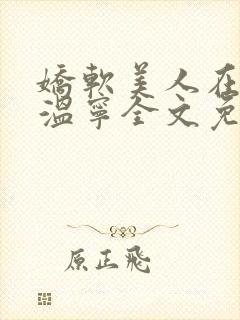 嬌軟美人在
溫寧全文免
原正飛